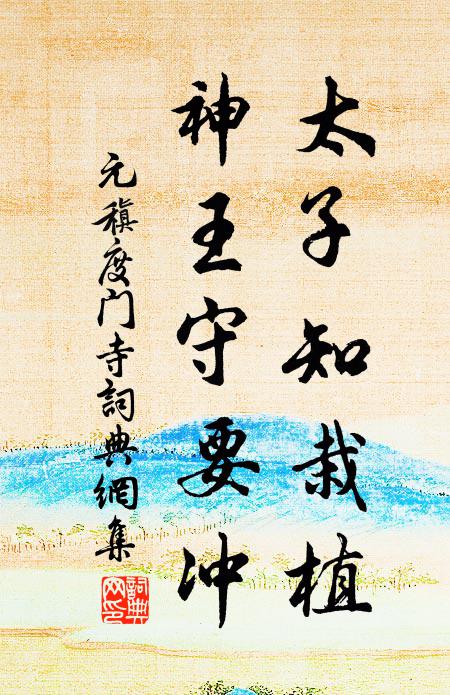 太子知栽植
神王守要冲
元稹度门寺詞典網集
詞典